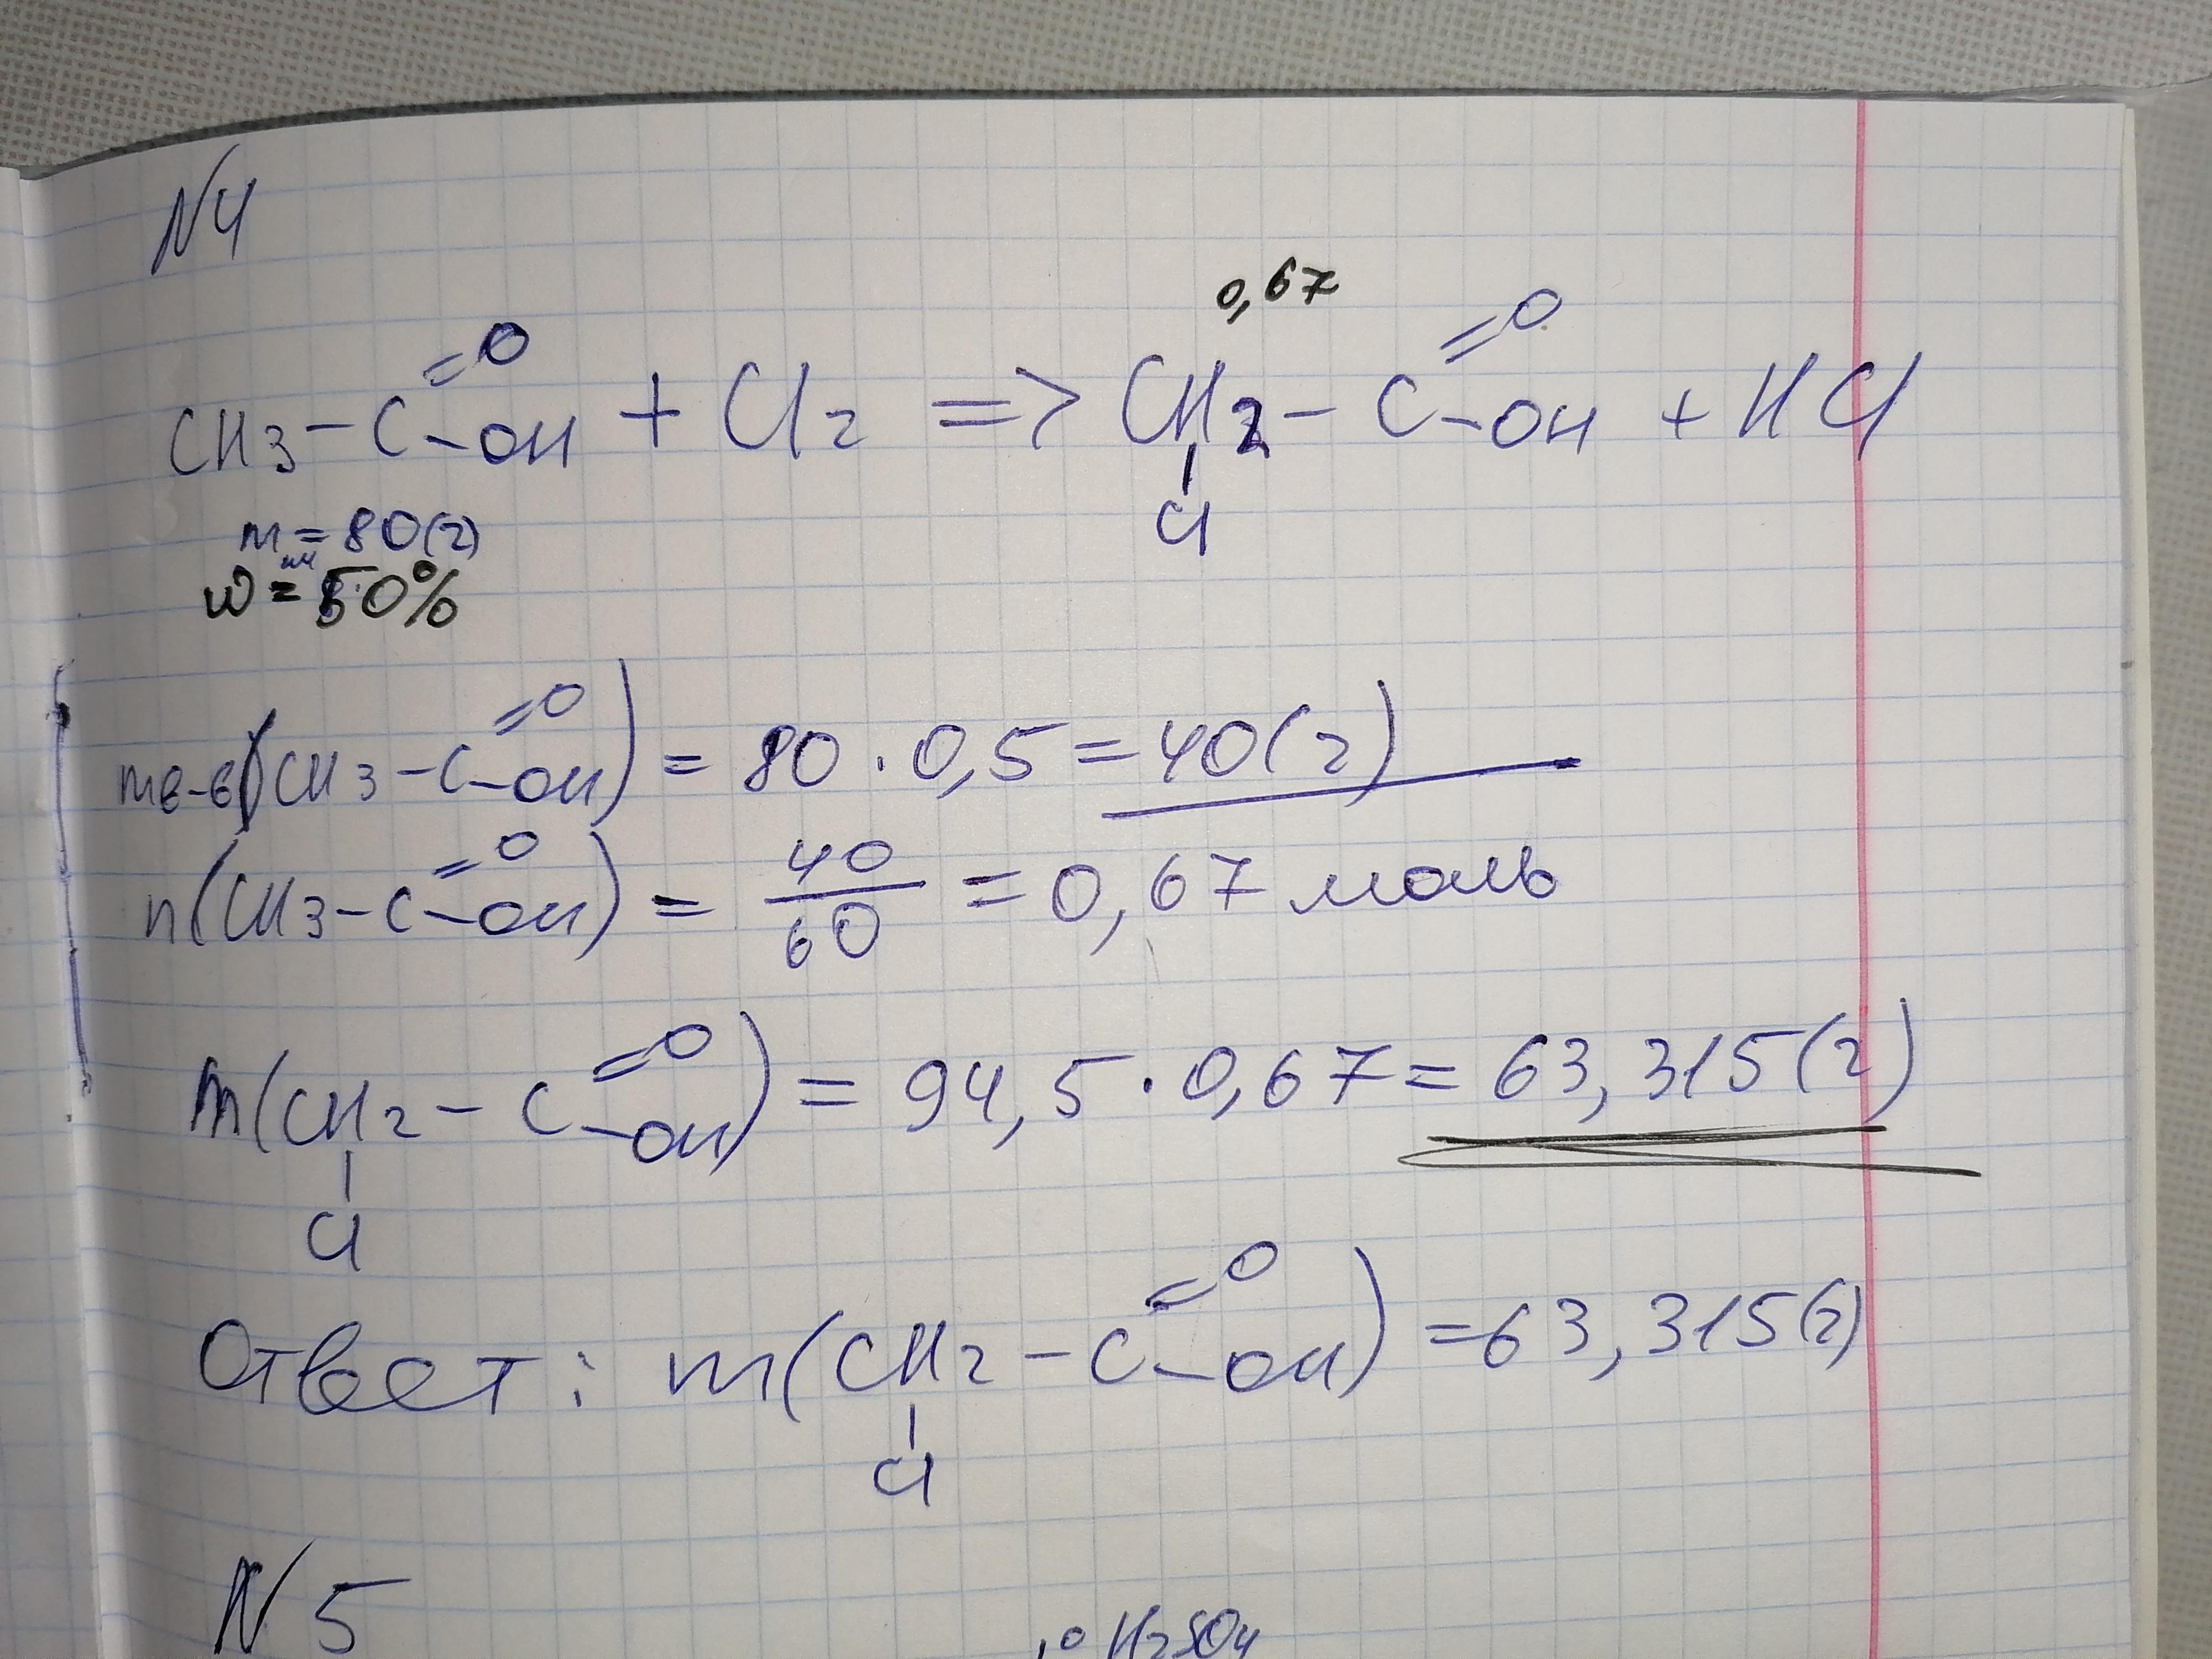 N4
0,67
CH3-C=O-OH + Cl2 => CH2-C=O-OH + HCl
Cl
m = 80(г)
w = 50%
mв-в(CH3-C=O-OH) = 80 · 0,5 = 40(г)
n(CH3-C=O-OH) = 40/60 = 0,67 моль
m(CH2-C=O-OH) = 94,5 · 0,67 = 63,315(г)
Cl
Ответ: m(CH2-C=O-OH) = 63,315(г)
Cl
N5
H2SO4